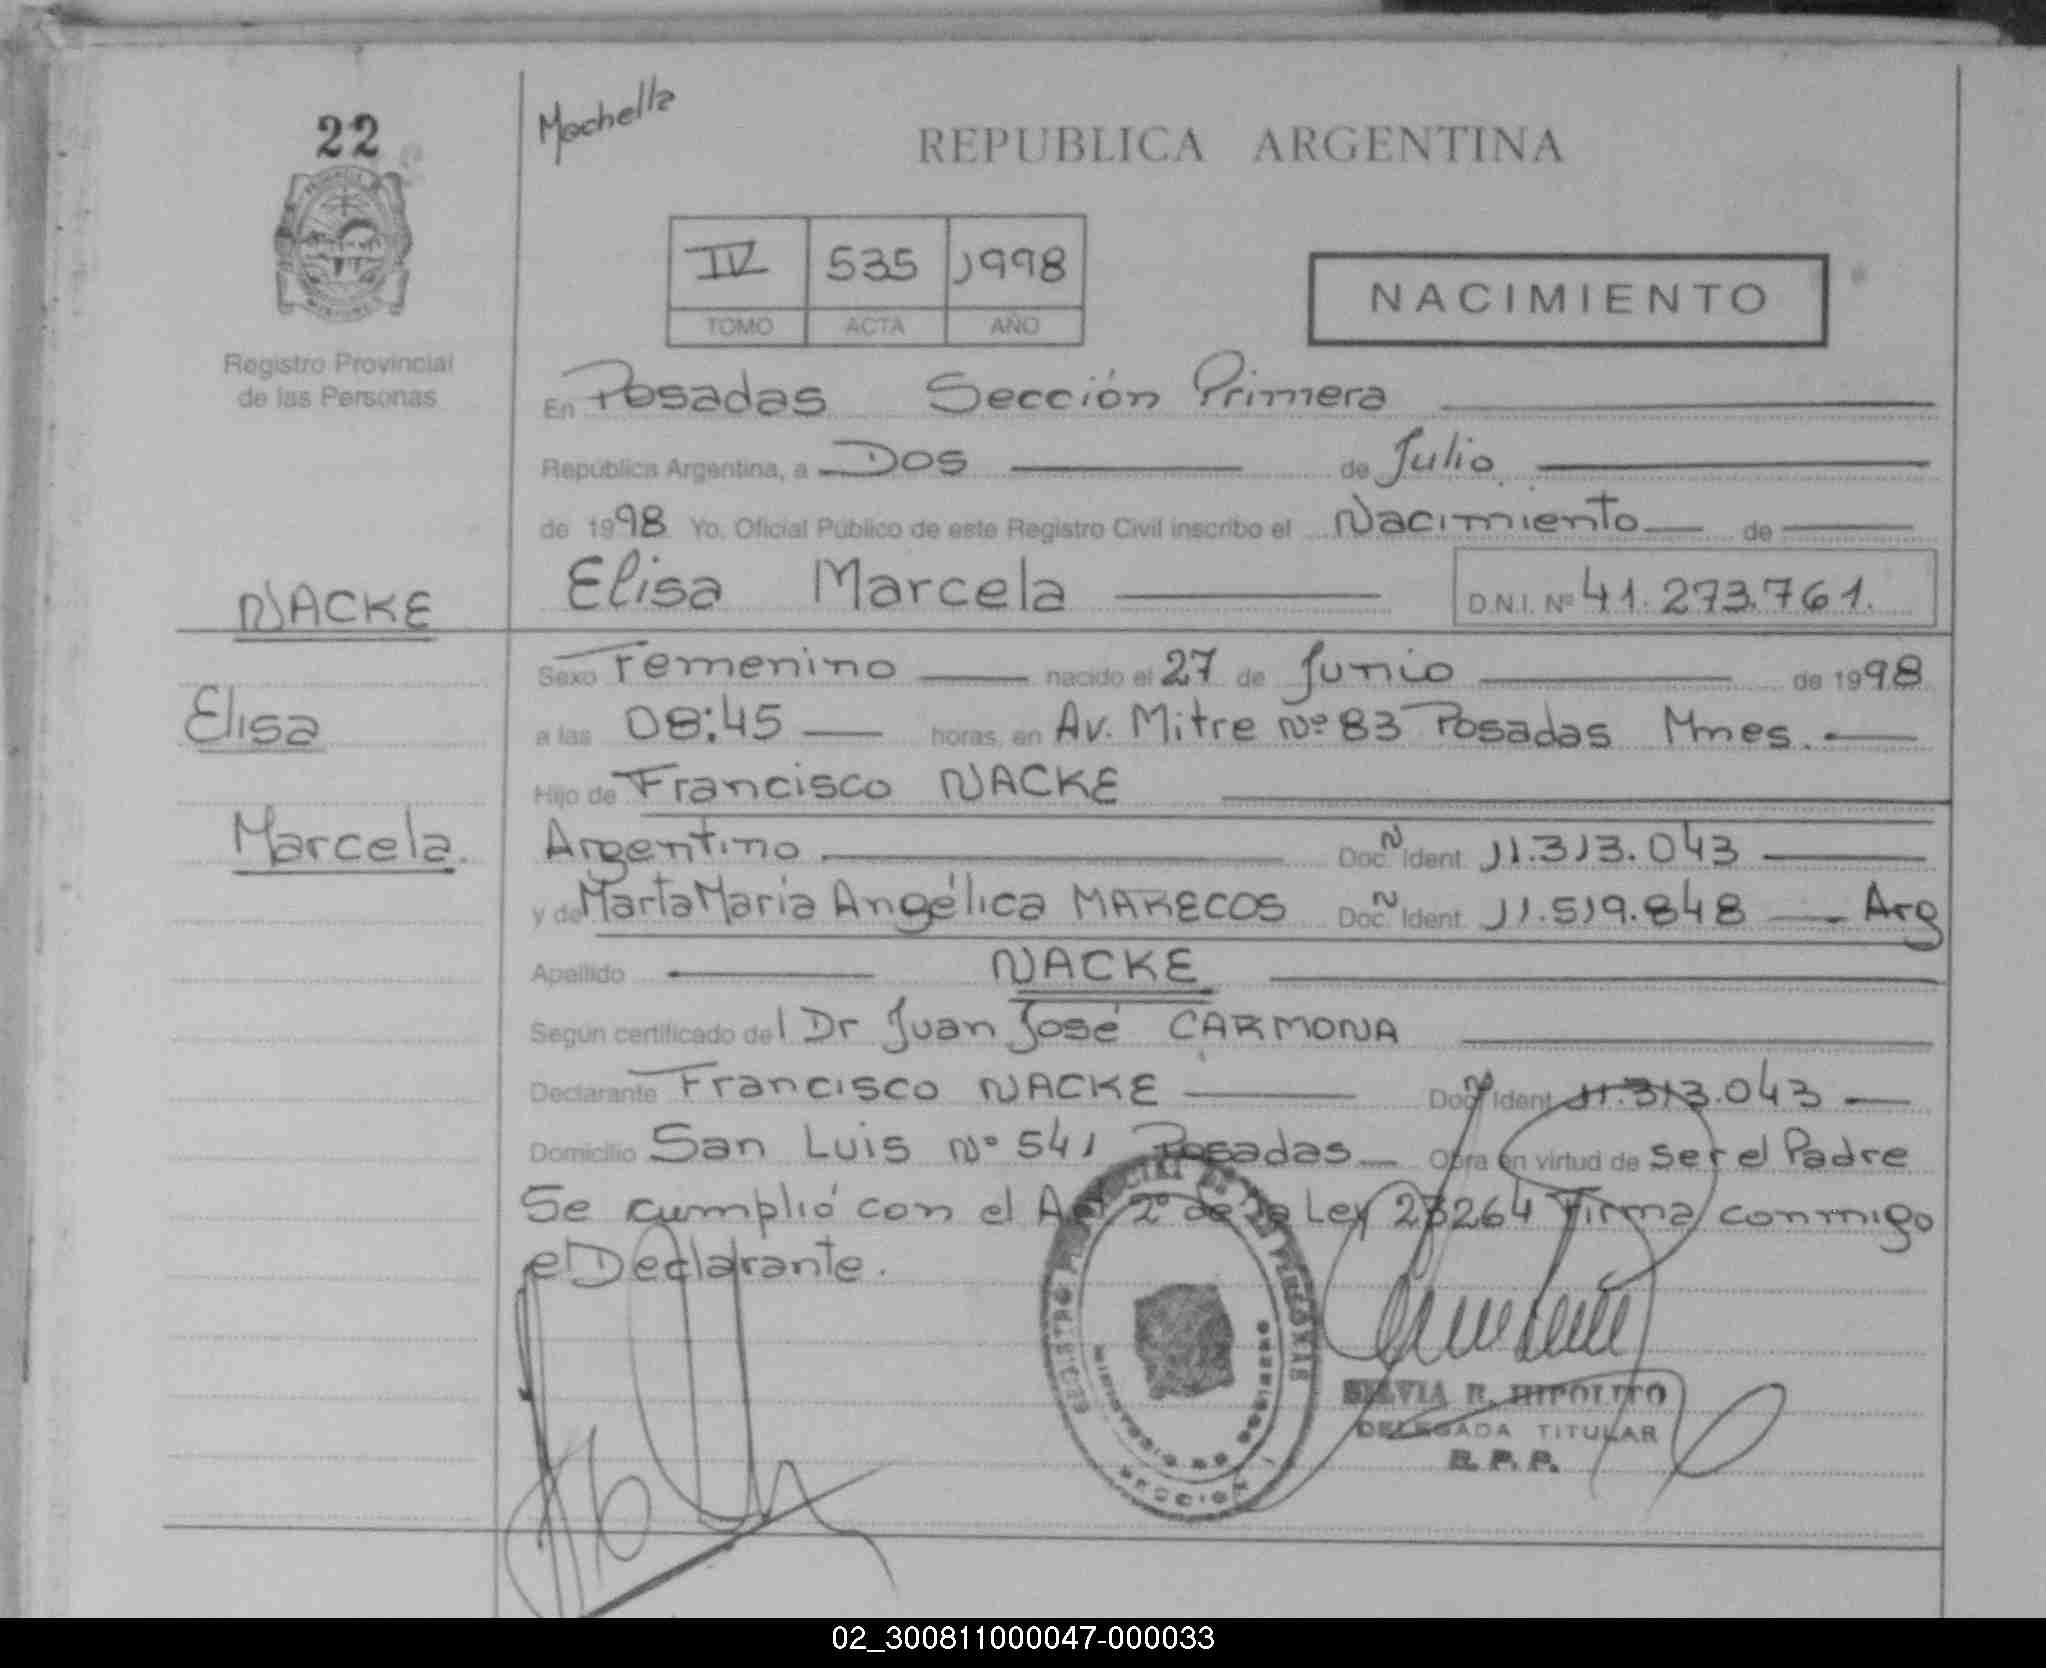 22
Mochella
REPUBLICA ARGENTINA
IV 535 1998
TOMO ACTA AÑO
NACIMIENTO
Registro Provincial
de las Personas
En Posadas Sección Primera
República Argentina, a Dos de Julio
de 1998 Yo, Oficial Público de este Registro Civil inscribo el Nacimiento de
Elisa Marcela D.N.I. Nº 41.273.761.
NACKE
Elisa
Marcela.
Sexo Femenino nacido el 27 de Junio de 1998
a las 08:45 horas, en Av. Mitre Nº 83 Posadas Mnes.
Hijo de Francisco NACKE
Argentino Doc. N Ident. 11.313.043
y de Marta María Angélica MARECOS Doc. N Ident. 11.519.848 Arg
Apellido NACKE
Según certificado del Dr Juan José CARMONA
Declarante Francisco NACKE Doc. N Ident. 11.313.043
Domicilio San Luis Nº 541 Posadas Obra en virtud de ser el Padre
Se cumplió con el Art 2º de la Ley 23264 Firma conmigo
el Declarante.
REGISTRO PROVINCIAL DE LAS PERSONAS
MINISTERIO DE GOBIERNO
SECCION 1
SILVIA R. HIPOLITO
DELEGADA TITULAR
R. P. P.
02_300811000047-000033